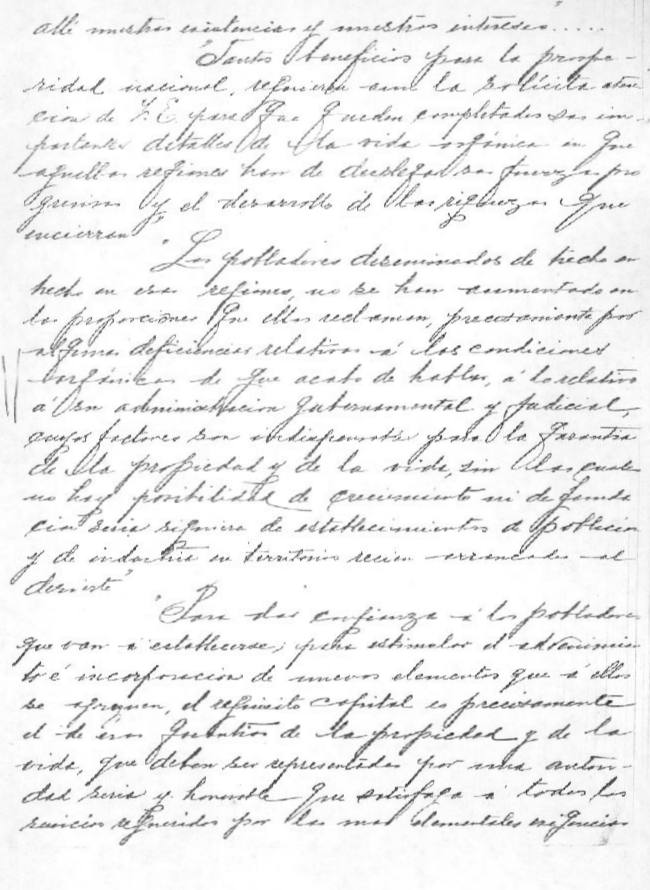 allí nuestras existencias y nuestros intereses".....
"Tantos beneficios para la prospe-
ridad nacional, requieren aun la solícita aten
cion de V. E. para que queden completados sus im-
portantes detalles de la vida orgánica en que
aquellas regiones han de desplegar sus fuerzas pro
gresivas y el desarrollo de las riquezas que
encierran"
"Los pobladores diseminados de hecho en
hecho en esas regiones, no se han aumentado en
las proporciones que ellas reclaman, precisamente por
algunas deficiencias relativas á las condiciones
orgánicas de que acabo de hablar, á lo relativo
á su administracion gubernamental y judicial,
cuyos factores son indispensable para la garantia
de la propiedad y de la vida, sin las cuales
no hay posibilidad de crecimiento ni de funda
cion seria siquiera de establecimientos de poblacion
y de industria en territorios recien arrancados al
desierto"
"Para dar confianza á los pobladores
que van á establecerse; para estimular el advenimien
to é incorporacion de nuevos elementos que á ellos
se agreguen, el requisito capital es precisamente
el de esas garantias de la propiedad y de la
vida, que deban ser representadas por una autori-
dad seria y honorable que satisfaga á todos los
servicios requeridos por las mas elementales exigencias